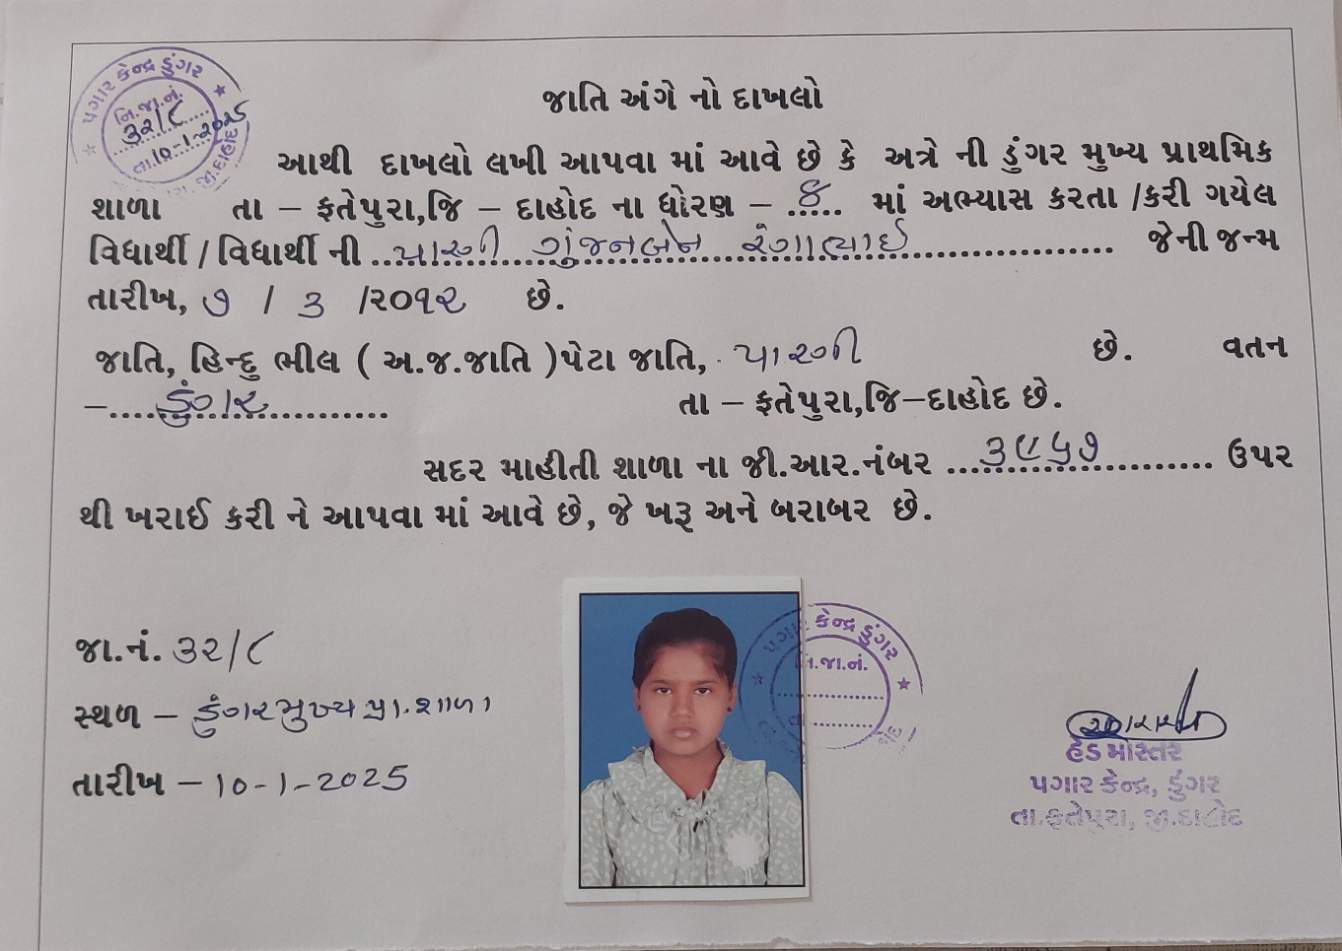 પગાર કેન્દ્ર ડુંગર
નિ.જા.નં.
૩૨/૮
તા.10-1-2025
જી.દાહોદ
જાતિ અંગે નો દાખલો
આથી દાખલો લખી આપવા માં આવે છે કે અત્રે ની ડુંગર મુખ્ય પ્રાથમિક
શાળા તા – ફતેપુરા,જિ – દાહોદ ના ધોરણ – ..૪.. માં અભ્યાસ કરતા /કરી ગયેલ
વિધાર્થી / વિધાર્થી ની ..પારગી ગુંજનબેન રંગાભાઈ.. જેની જન્મ
તારીખ, ૭ / ૩ /૨૦૧૨ છે.
જાતિ, હિન્દુ ભીલ ( અ.જ.જાતિ )પેટા જાતિ, પારગી છે. વતન
–....ડુંગર.... તા – ફતેપુરા,જિ–દાહોદ છે.
સદર માહીતી શાળા ના જી.આર.નંબર ...૩૯૫૭... ઉપર
થી ખરાઈ કરી ને આપવા માં આવે છે, જે ખરૂ અને બરાબર છે.
જા.નં. ૩૨/૮
સ્થળ – ડુંગર મુખ્ય પ્રા. શાળા
તારીખ – 10-1-2025
પગાર કેન્દ્ર ડુંગર
નિ.જા.નં.
હેડ માસ્તર
પગાર કેન્દ્ર, ડુંગર
તા.ફતેપુરા, જી.દાહોદ